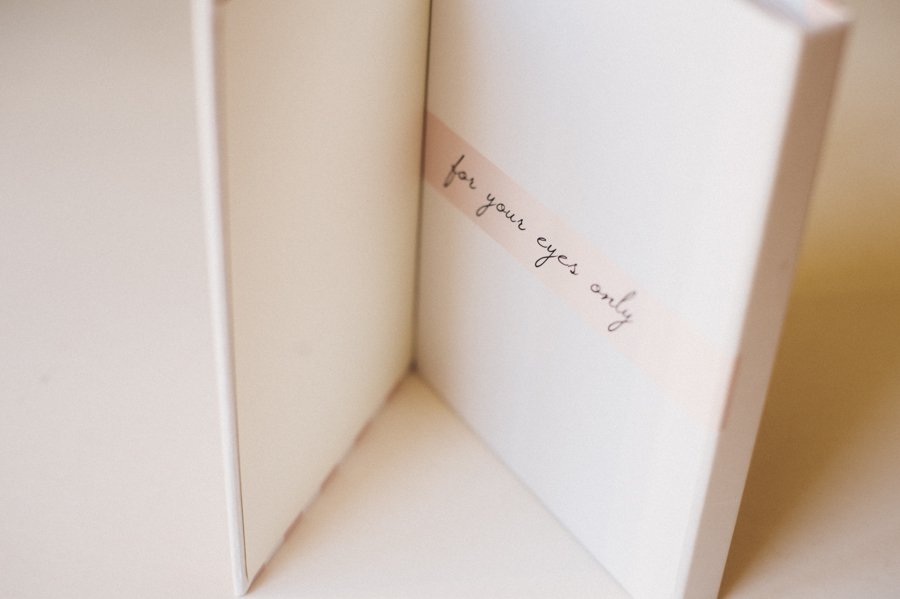 for your eyes only